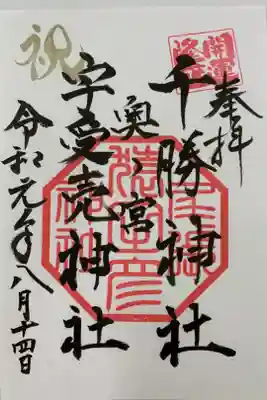 奉拝
開運
千勝神社
奥ノ宮
宇受売神社
祝
令和元年八月十四日